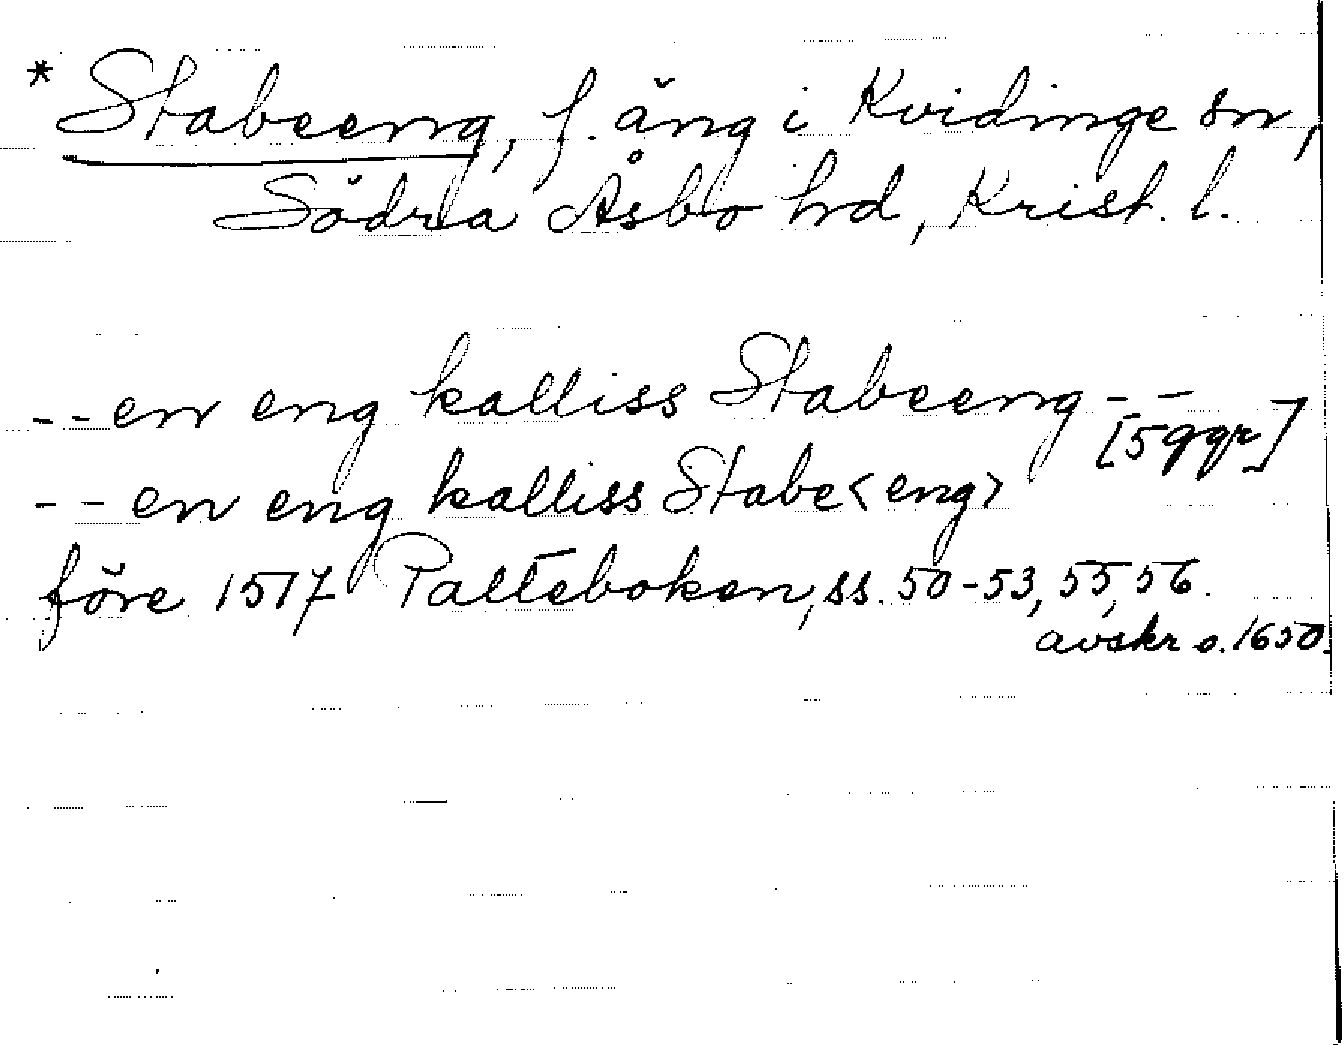 * Stabeeng, f. äng i Kvidinge sn,
Södra Åsbo hd, Krist. l.
-- en eng kalliss Stabeeng --
[5 ggr]
-- en eng kalliss Stabe<eng>
före 1517 Palteboken, ss. 50-53, 55, 56.
avskr o. 1650.